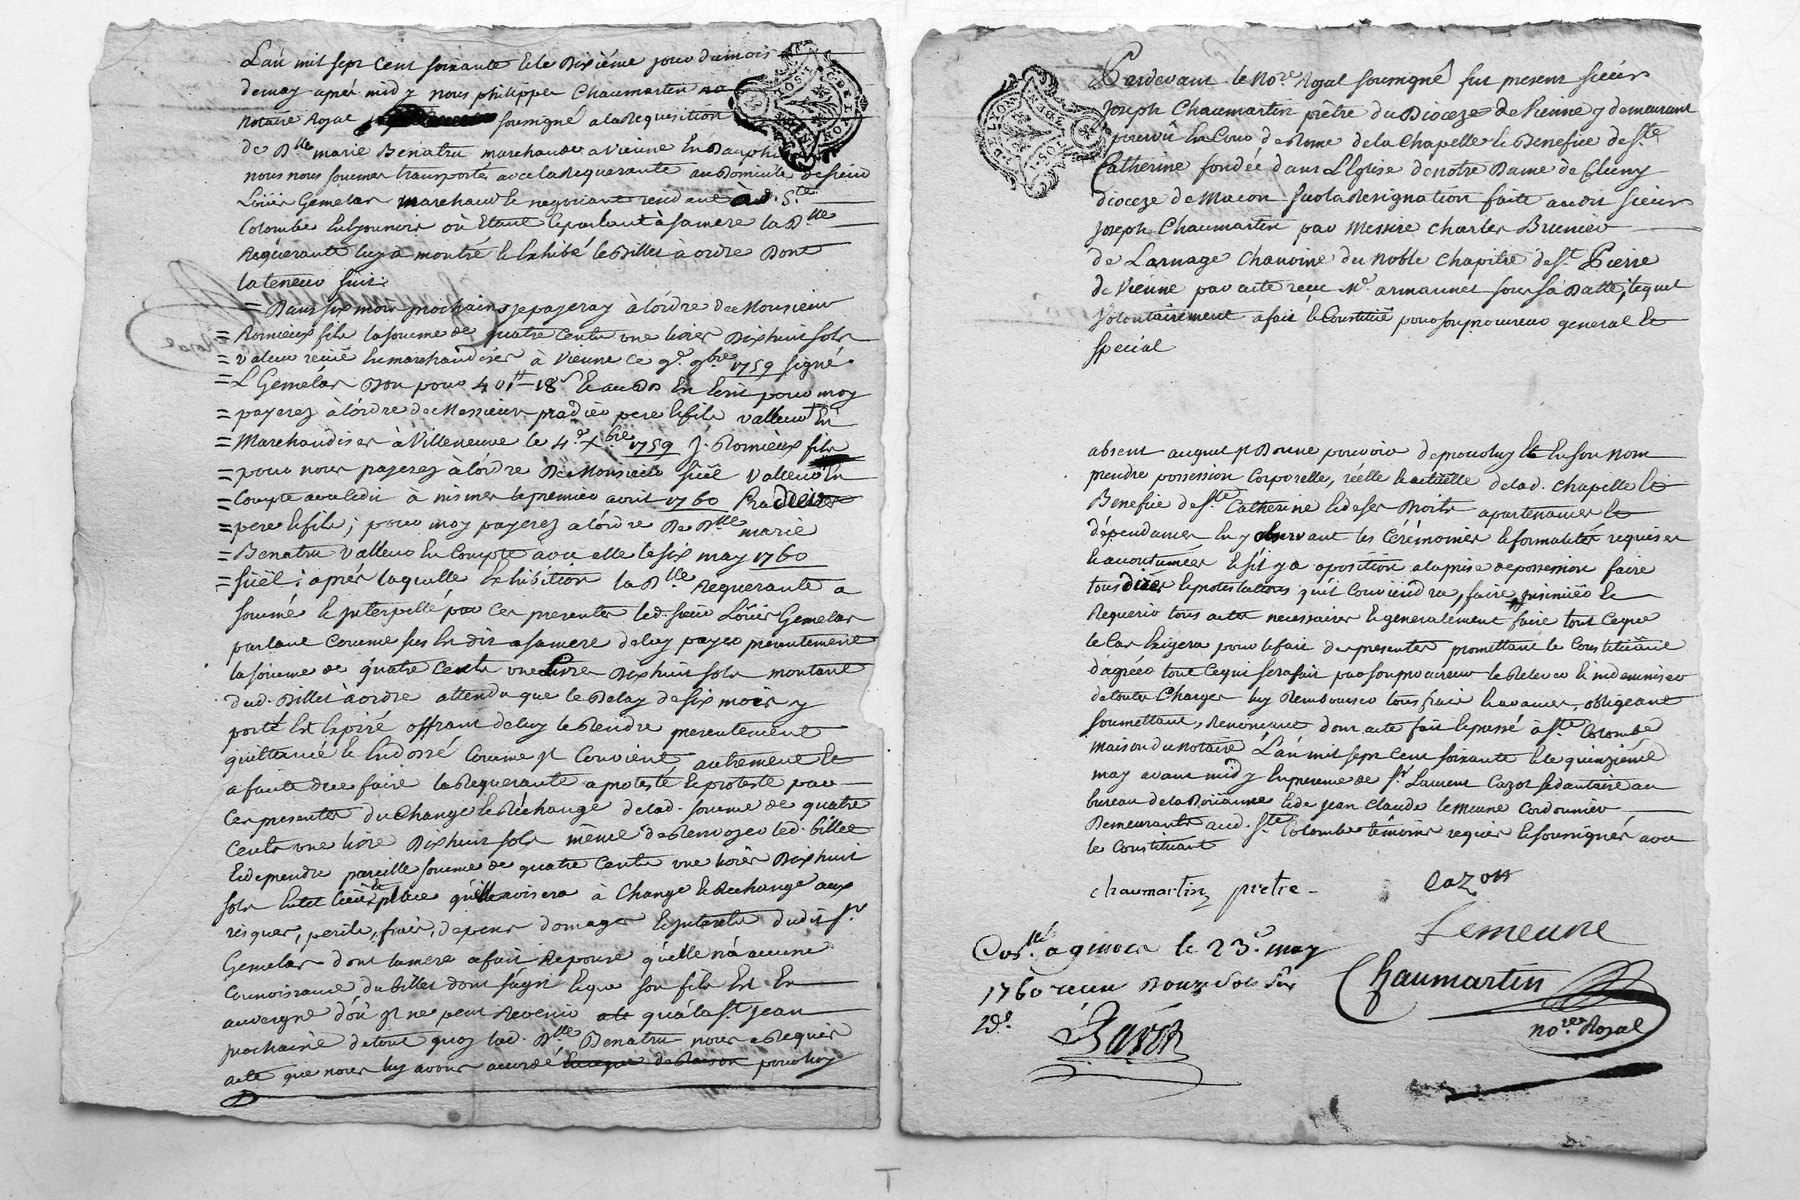 L'an mil sept cent soixante et le dixième jour du mois
de may après midy nous philippe Chaumartin
notaire Royal soussigné a la Requisition
de Dlle marie Benatru marchande a Vienne En Dauphi
nous nous sommes transportés avec la Requerante au Domicile de sieur
Loüis Gemelas marchand et negotiant residant à d. Ste
Colombe ou Etant et parlant à sa mere la Dlle
Requerante luy a montré et Exhibé le Billet à ordre Dont
la teneur suit
= Dans six mois prochains je payeray à l'ordre De Monsieur
= Romieux fils la somme de quatre cents une livres Dixhuit sols
= valeur reçüe En marchandises à Vienne ce 9e 9bre 1759 signé
= L Gemelas Bon pour 401tt-18s Et au dos En Ecrit pour moy
= payerez à l'ordre de Messieurs pradier pere et fils valleur En
= Marchandises à Villeneuve le 4e xbre 1759 J. Romieux fils
= pour nous payerez à l'ordre De Monsieur Süel Valleur En
= Compte avec ledit à nismes le premier avril 1760 Pradier
= pere et fils ; pour moy payerez a l'ordre De Dlle marie
= Benatru Valleur En Compte avec elle le six may 1760
= Süel ; après laquelle Exhibition la Dlle Requerante a
sommé et jnterpellé par ces presentes led. sieur Loüis Gemelas
parlant comme sus En dit a sa mere de luy payer presentement
la somme de quatre cents une Livres Dixhuit sols montant
dud. Billet à ordre attendu que le Delay de six mois y
porté Est Expiré offrant de luy le Rendre presentement
quittancé et Endossé Comme jl Convient, autrement Et
a faute de ce faire la Requerante a protesté et proteste par
Ces presentes du Change et Réchange de lad. somme de quatre
Cents une livre Dixhuit sols même de Renvoyer led. billet
Et de prendre pareille somme de quatre Cents une livres Dixhuit
sols En tel lieu et place qu'elle avisera à Change et Rechange aux
risques, perils, frais, depens domages Et jnterets dudit sr
Gemelas dont la mere a fait Réponse qu'elle n'a aucune
Connoissance du billet dont s'agit Et que son fils Est En
auvergne d'où jl ne peut Revenir qu'à la st jean
prochaine de tout quoy lad. Dlle Benatru nous a Requis
acte que nous luy avons accordé pour luy
Pardevant le Nore Royal soussigné fut present sieur
Joseph Chaumartin prêtre du Dioceze de Vienne y demeurant
pourvû En Cour de Rome de la Chapelle et Benefice de Ste
Catherine fondée dans L'Eglise de notre Dame de Cluny
dioceze de Macon sur la Resignation faite audit sieur
Joseph Chaumartin par Messire Charles Brenier
de Larnage Chanoine du noble Chapitre de St Pierre
de Vienne par acte reçu Me armannet sous sa Datte, lequel
Volontairement a fait et Constitué pour son procureur general Et
special
absent auquel jl Donne pouvoir de pour luy Et En son nom
prendre possession Corporelle, réelle et actuelle de lad. Chapelle Et
Benefice de Ste Catherine Et de ses Droits apartenances Et
dépendances En y observant les Cérémonies et formalités requises
Et accoutumées Et s'il y a oposition a la prise de possession faire
tous dires Et protestations qu'il Conviendra, faire jnsinüer Et
Requerir tous actes necessaires Et generalement faire tout Ceque
le Cas Exigera pour le fait des presentes promettant le Constituant
d'agréer tout Cequi sera fait par son procureur le Relever Et indemniser
de toutes Charges luy Rembourser tous frais Et avances, obligeant
soumettant, Renonçant dont acte fait Et passé à Ste Colombe
maison du notaire L'an mil sept cent soixante Et le quinzième
may avant midy En presence de Sr Laurent Cazot sedantaire au
bureau de la Doüanne Et de jean Claude lemeune Cordonnier
Demeurants aud. Ste Colombe témoins requis Et soussignés avec
le Constituant
chaumartin prêtre - Cazott
Lemeune
Conlé a givors le 23e may
1760 reçu Douze sols six
drs
Chaumartin
nore Royal